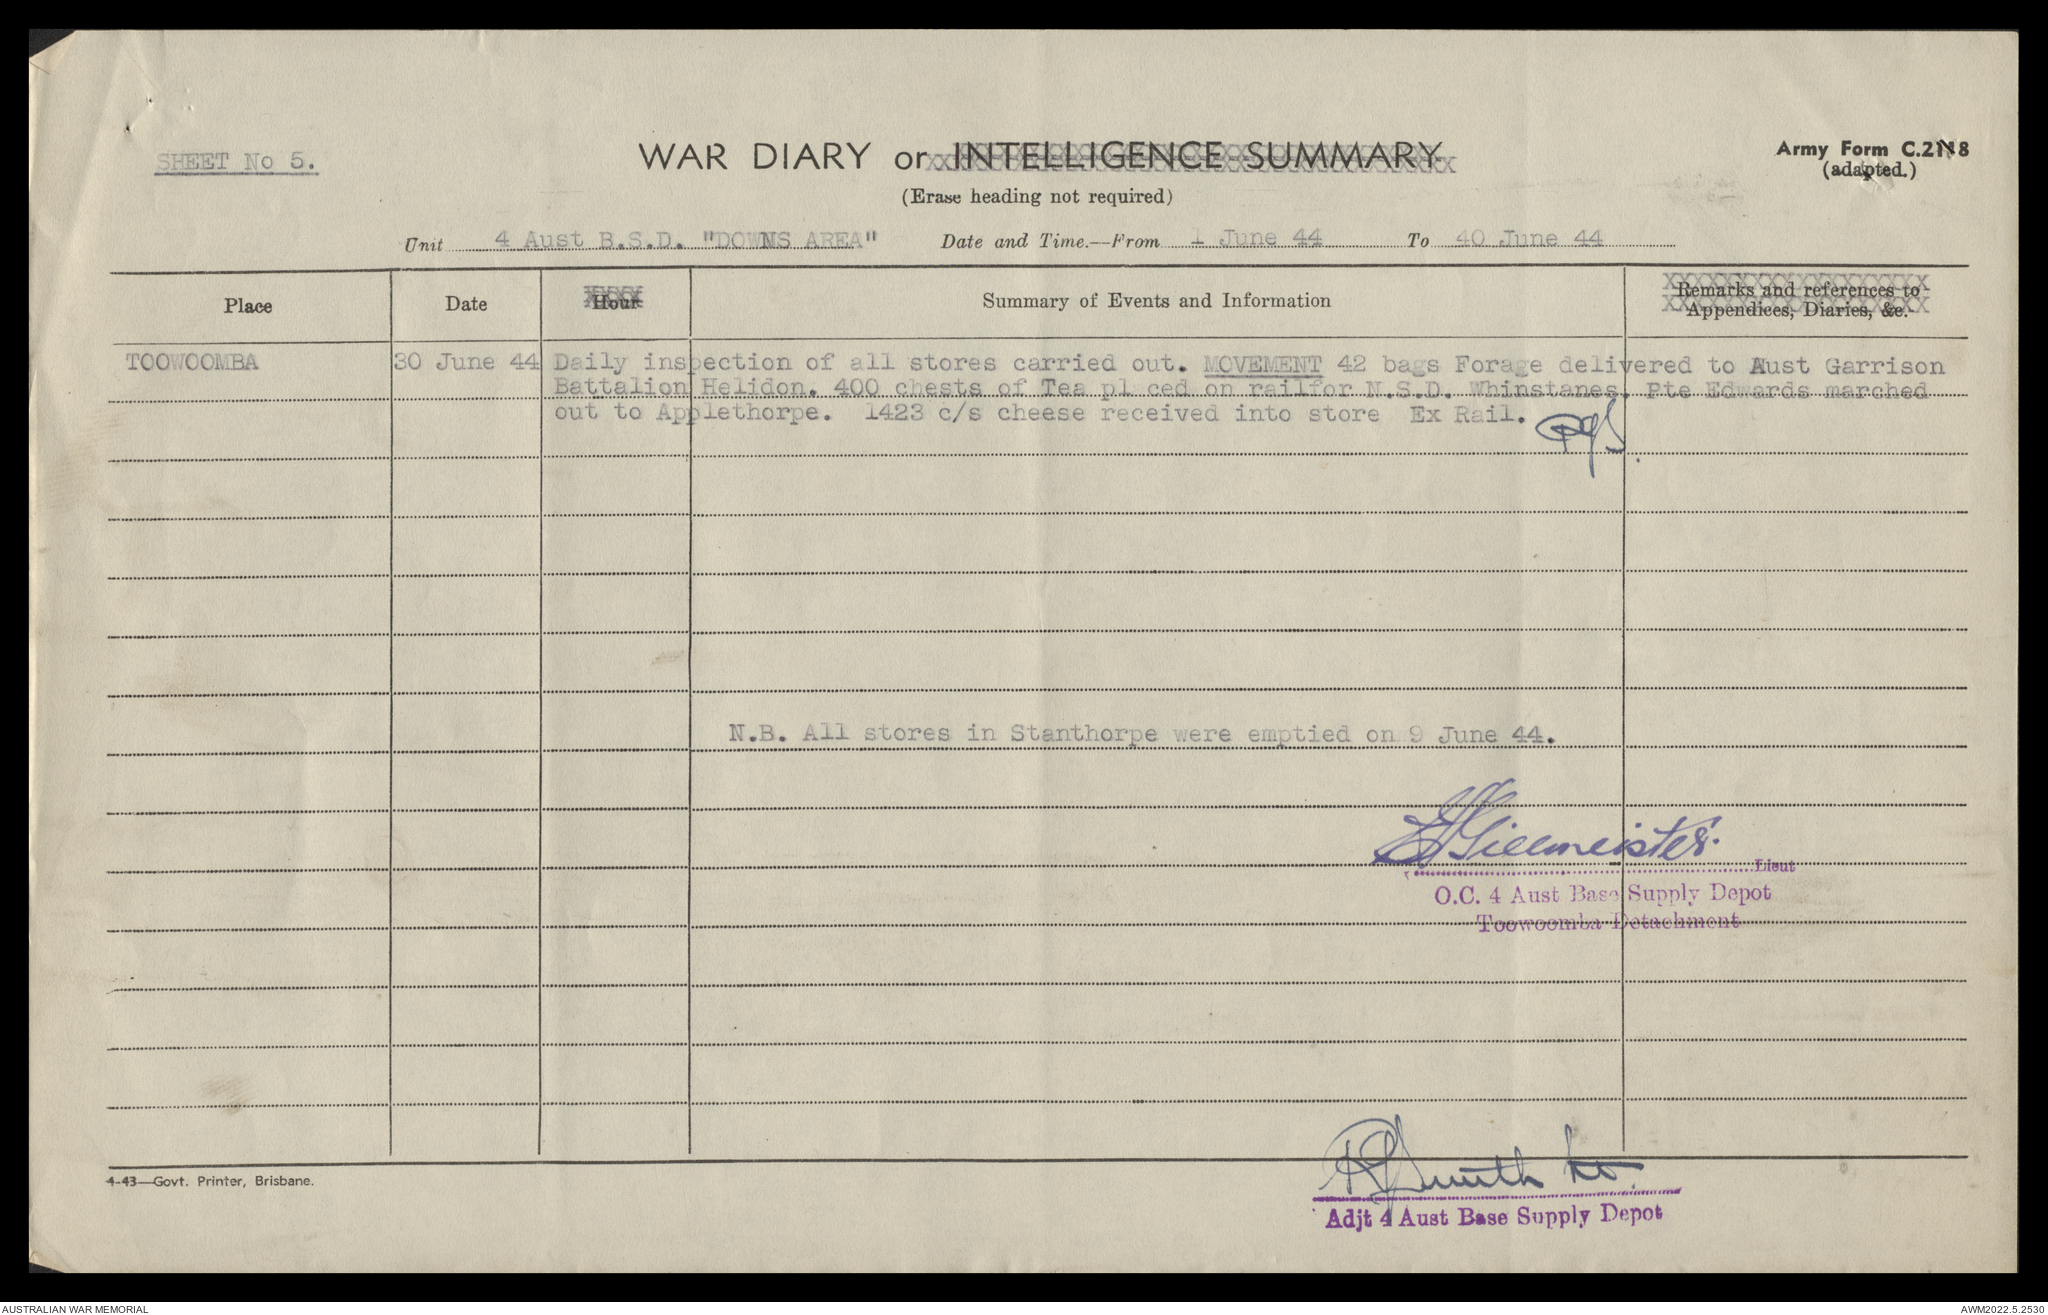 SHEET No 5.
WAR DIARY or INTELLIGENCE SUMMARY
Army Form C.2118
(adapted.)
(Erase heading not required)
Unit 4 Aust B.S.D. "DOWNS AREA" Date and Time.—From 1 June 44 To 40 June 44
Place Date Hour Summary of Events and Information Remarks and references to
Appendices, Diaries, &c.
TOOWOOMBA 30 June 44 Daily inspection of all stores carried out. MOVEMENT 42 bags Forage delivered to Aust Garrison
Battalion Helidon. 400 chests of Tea placed on railfor N.S.D. Whinstanes. Pte Edwards marched
out to Applethorpe. 1423 c/s cheese received into store Ex Rail.
N.B. All stores in Stanthorpe were emptied on 9 June 44.
Lieut
O.C. 4 Aust Base Supply Depot
Toowoomba Detachment
4-43—Govt. Printer, Brisbane.
Smith
Adjt 4 Aust Base Supply Depot
AUSTRALIAN WAR MEMORIAL
AWM2022.5.2530